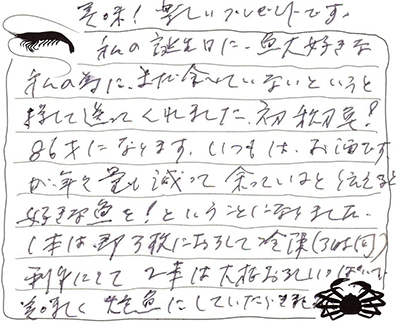 美味!嬉しいプレゼントです。
私の誕生日に、魚大好きな
私の為に、まだ食べていないというと
探して送ってくれました、初秋刀魚!
86才になります。いつもは、お酒です
が、年々量も減って余っているほど伝えると
好きな魚を!ということになりました。
1本は、即3枚におろして冷凍
刺身にして 2本は大根おろしいっぱいで
美味しく焼魚にしていただきました